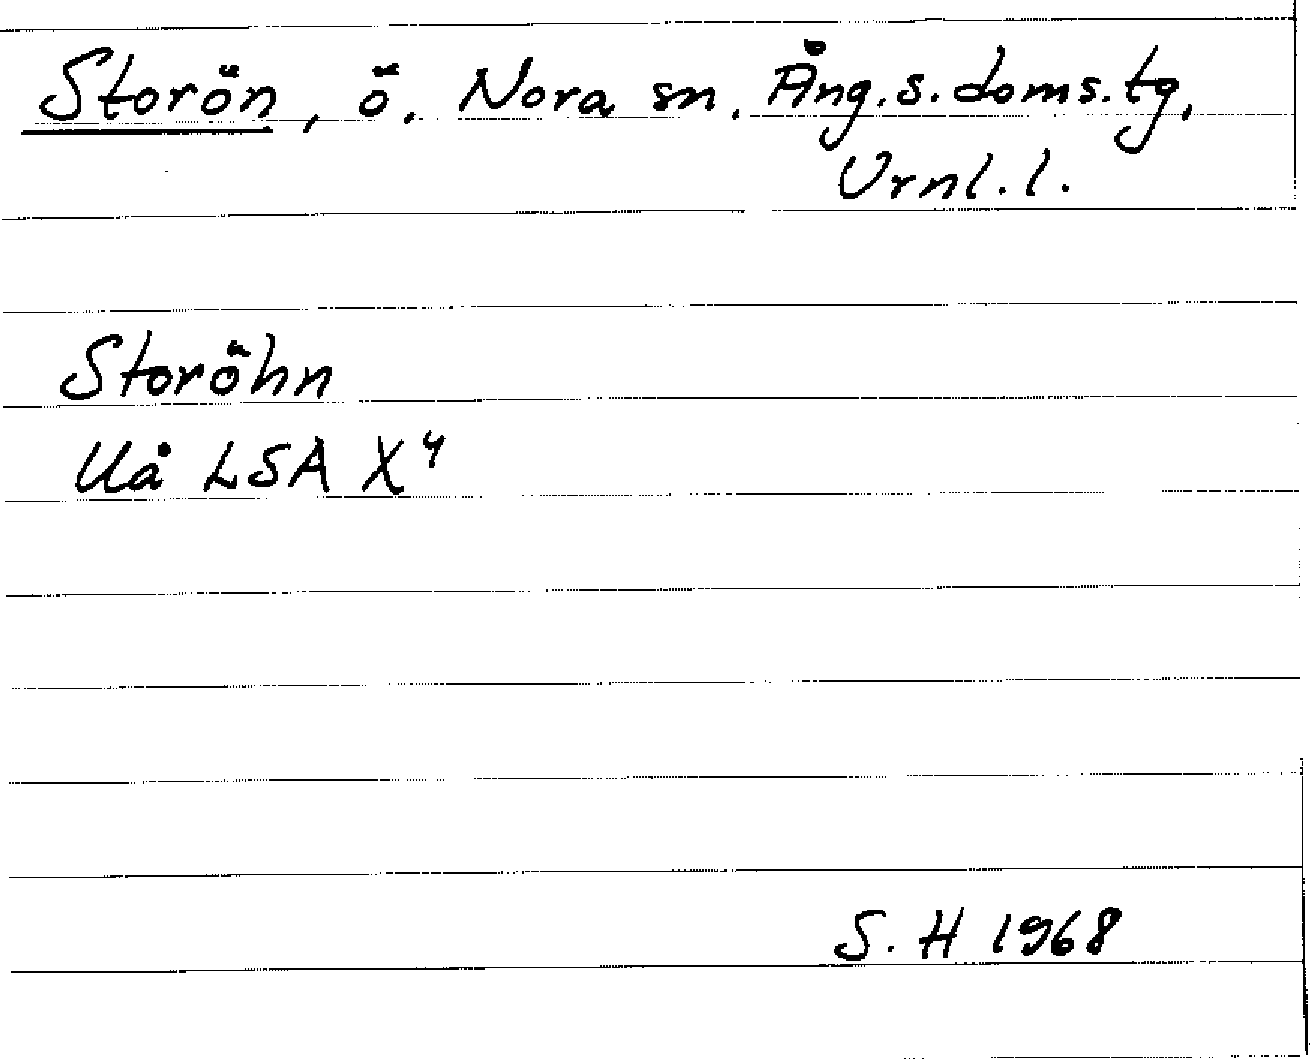 Storön, ö, Nora sn, Ång.s.doms.tg,
Vrnl.l.
Storöhn
Uå LSA X⁴
S. H 1968